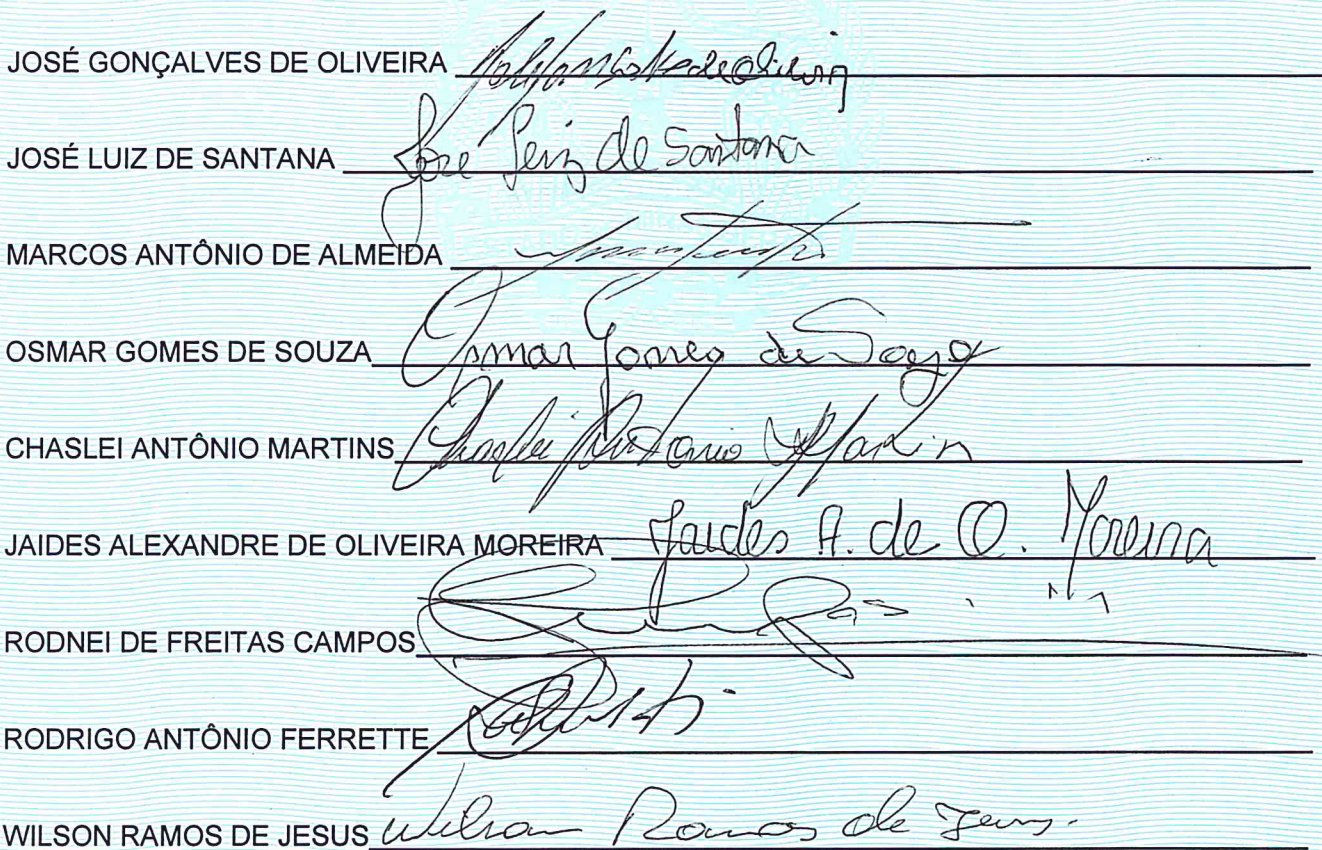 JOSÉ GONÇALVES DE OLIVEIRA
JOSÉ LUIZ DE SANTANA José Luiz de Santana
MARCOS ANTÔNIO DE ALMEIDA
OSMAR GOMES DE SOUZA Osmar Gomes de Souza
CHASLEI ANTÔNIO MARTINS Chaslei Antonio Martin
JAIDES ALEXANDRE DE OLIVEIRA MOREIRA Jaides A. de O. Moreira
RODNEI DE FREITAS CAMPOS
RODRIGO ANTÔNIO FERRETTE
WILSON RAMOS DE JESUS Wilson Ramos de Jesus.